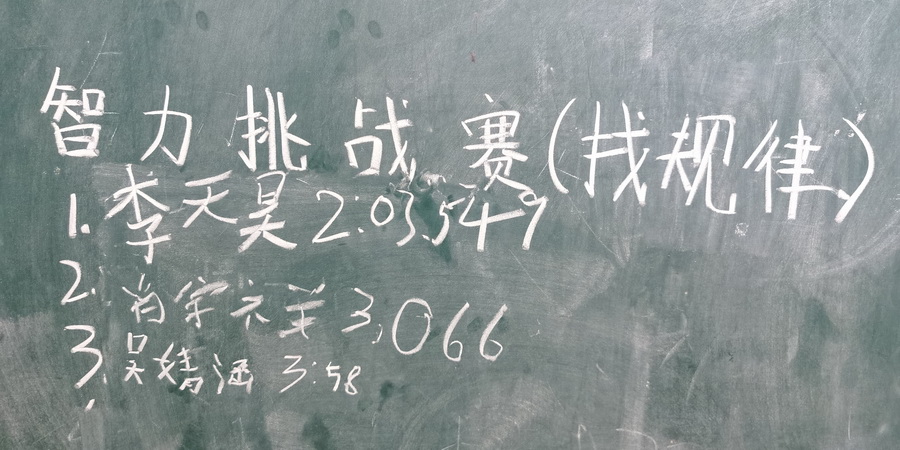 智力挑战赛(找规律)
1. 李天昊 2:03.549
2. 肖宇 3,066
3. 吴婧涵 3:58